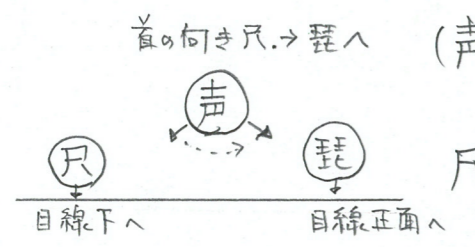 首の向き 尺.→ 琵へ
(声
声
尺
琵
目線下へ
目線正面へ
尺